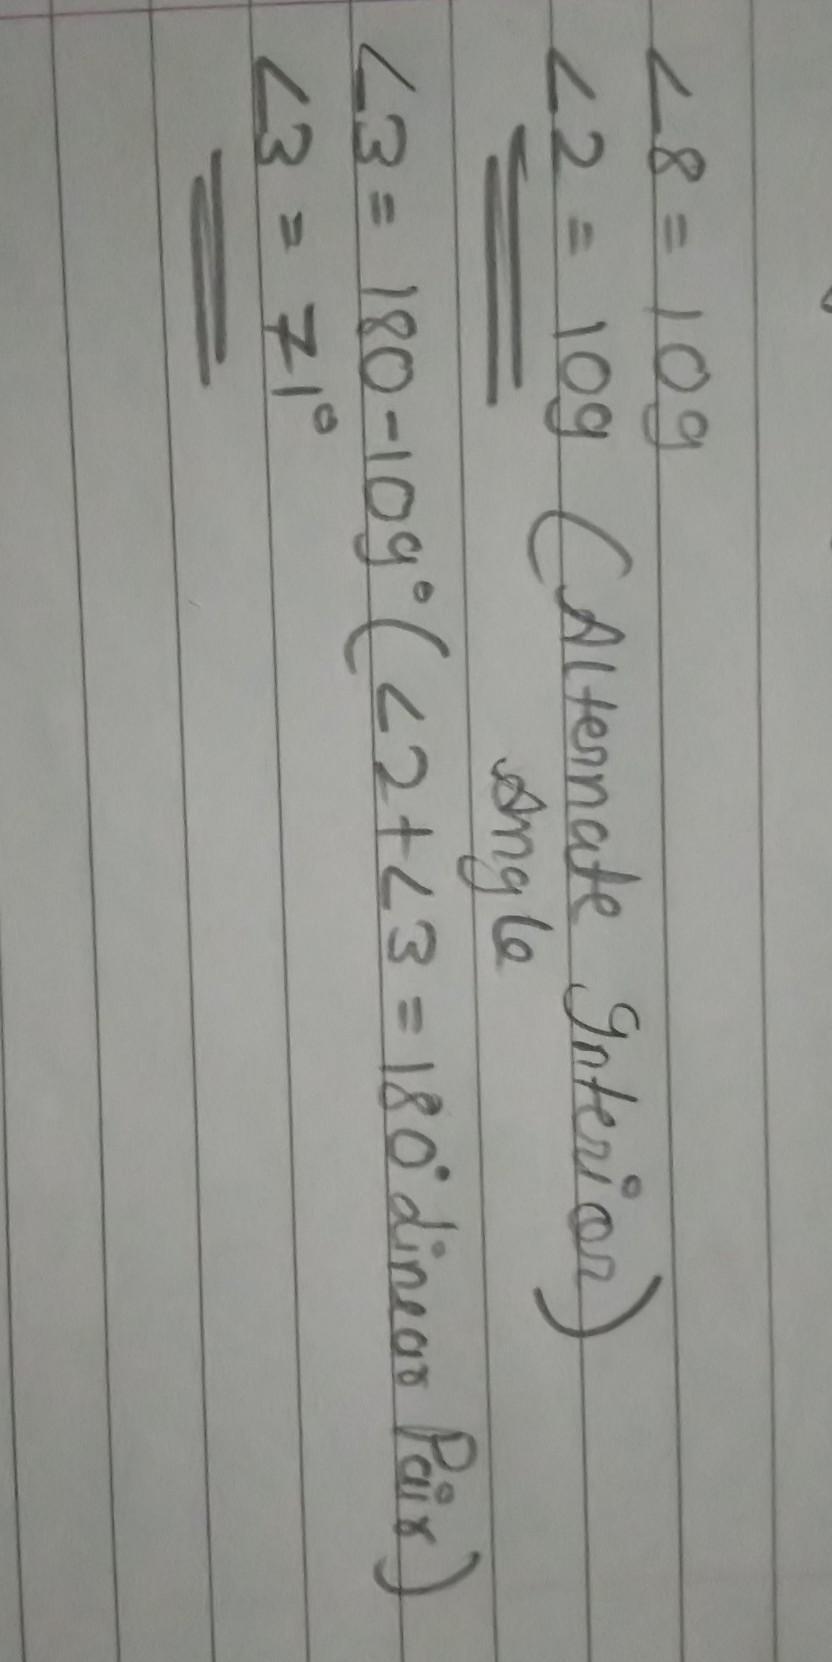 ∠8 = 109
∠2 = 109 (Alternate Interior)
Angle
∠3 = 180-109° (∠2+∠3 = 180° Linear Pair)
∠3 = 71°